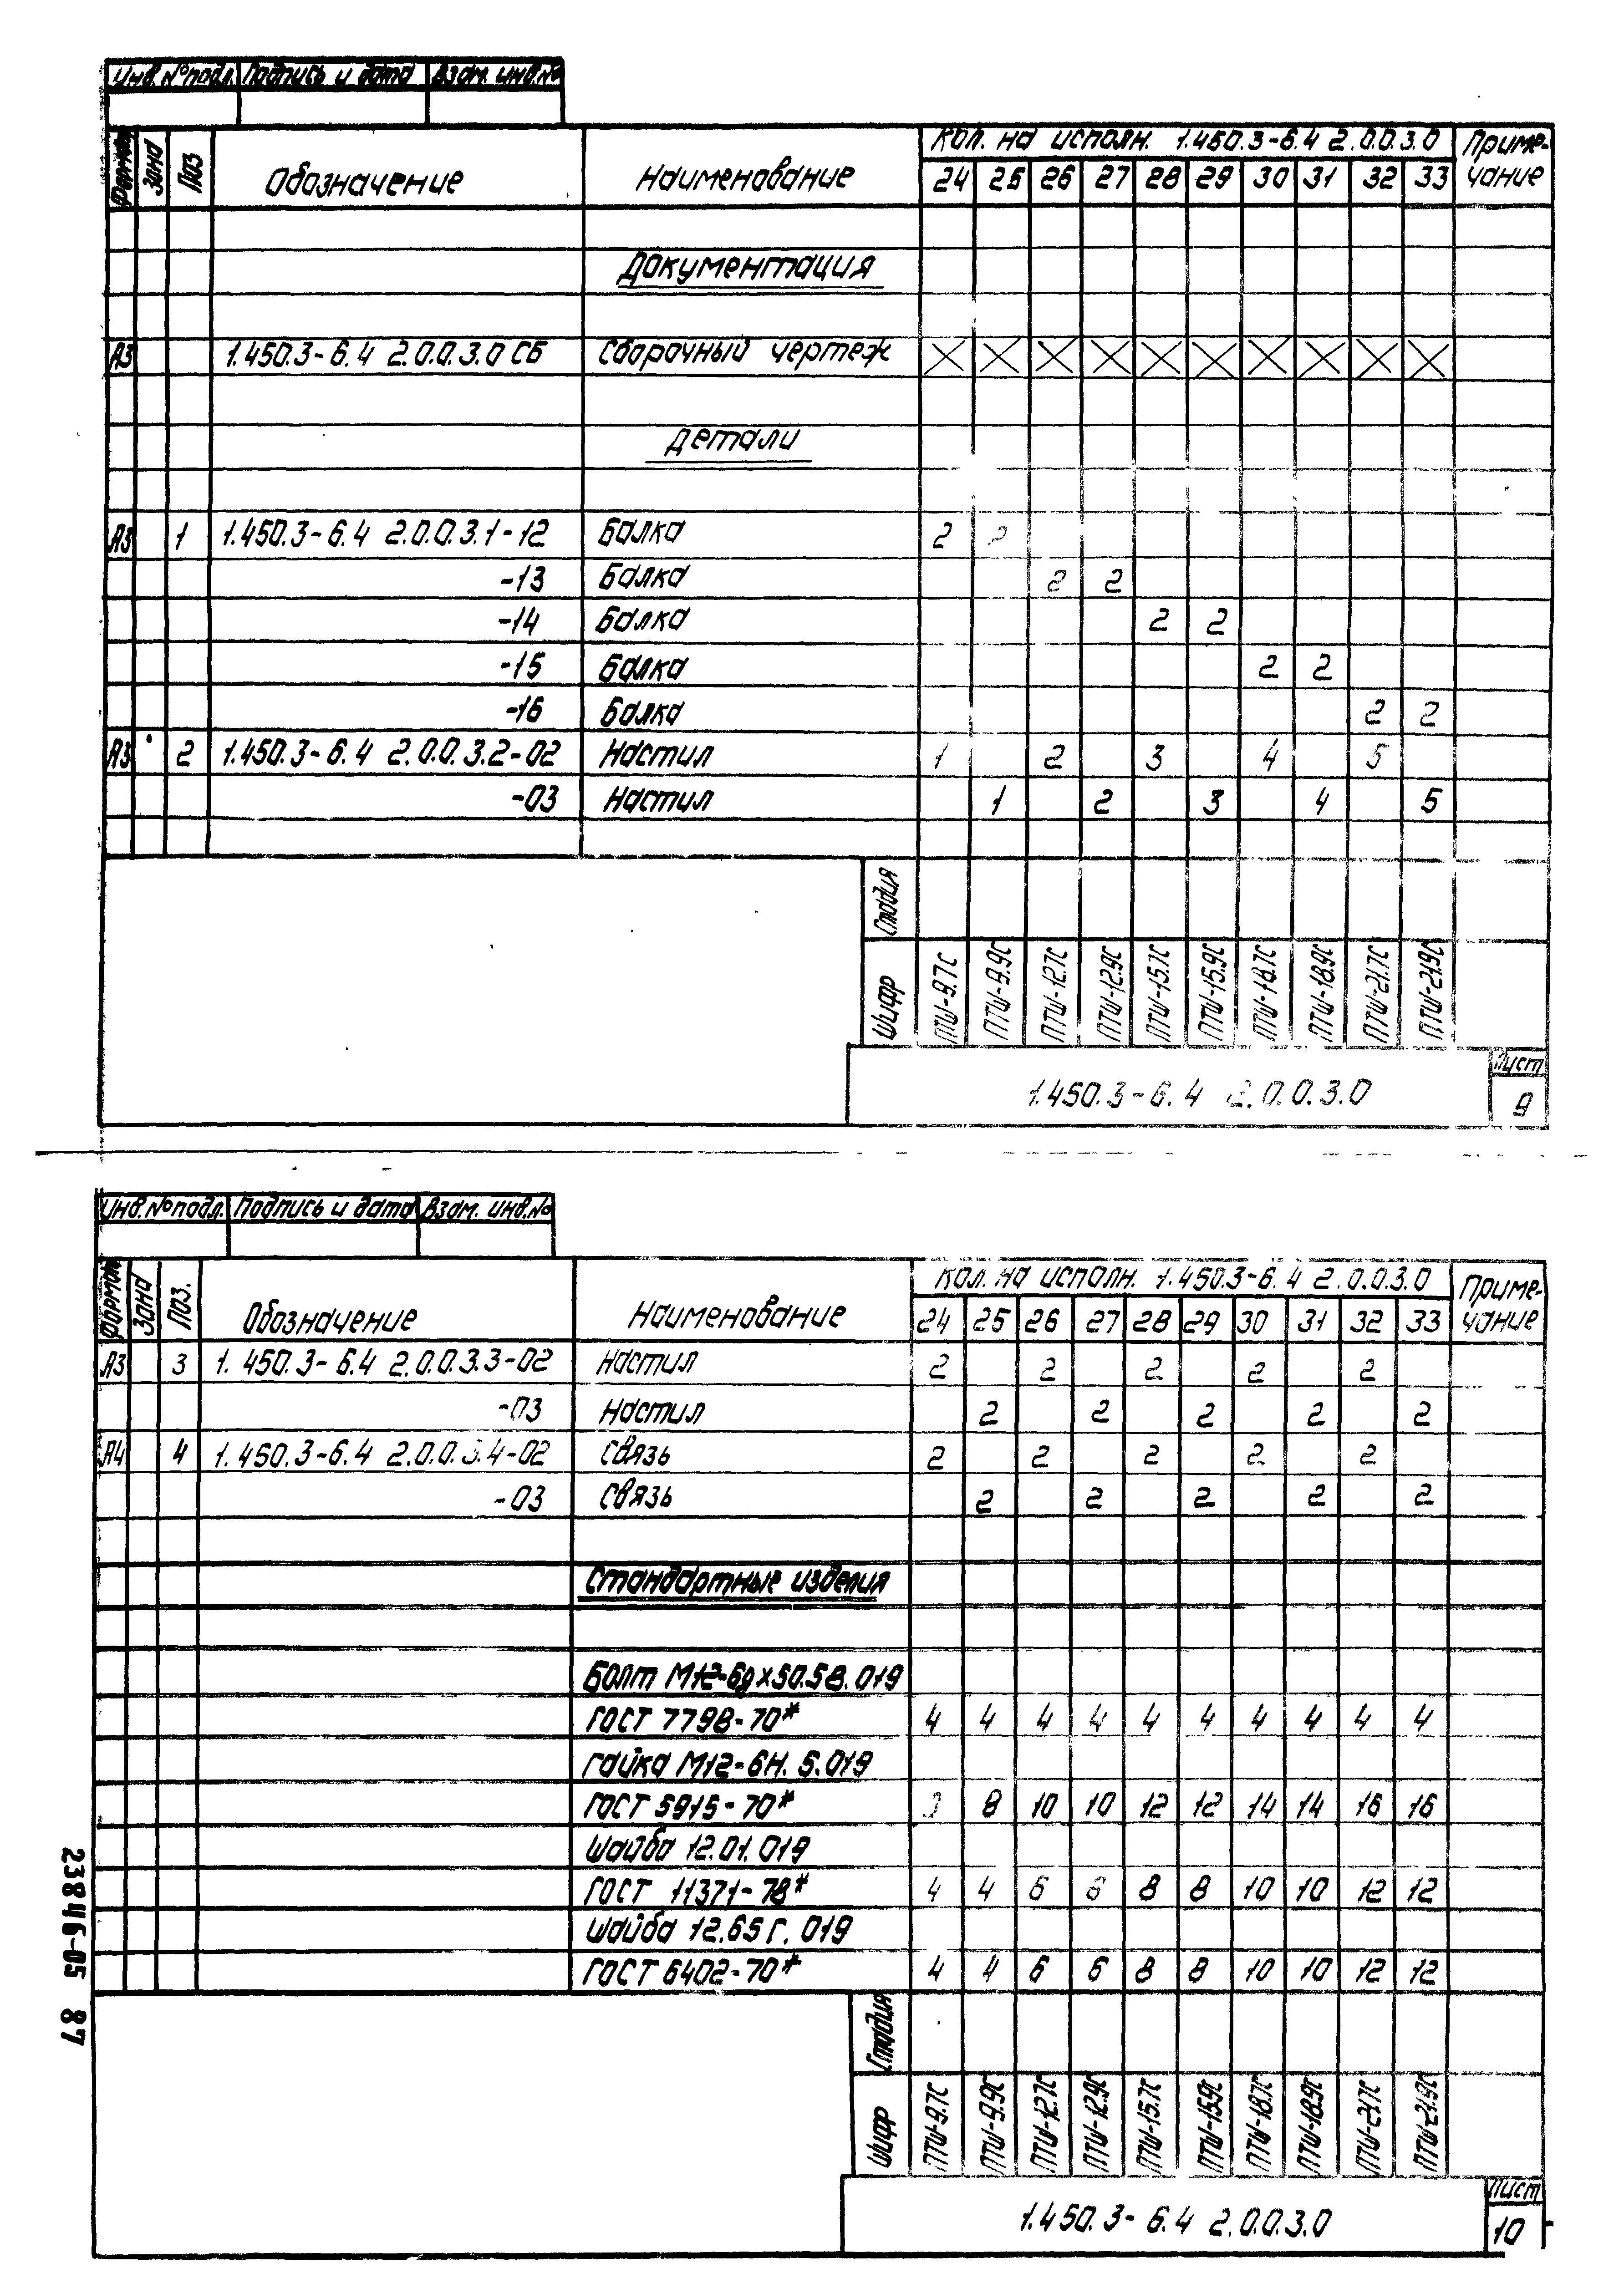 Инв. № подл. Подпись и дата Взам. инв. №
Формат Зона Поз Обозначение Наименование Кол. на исполн. 1.450.3-6.4 2.0.0.3.0 Приме-чание
24 25 26 27 28 29 30 31 32 33
Документация
А3 1.450.3-6.4 2.0.0.3.0 СБ Сборочный чертеж X X X X X X X X X X
Детали
А3 1 1.450.3-6.4 2.0.0.3.1-12 Балка 2 2
-13 Балка 2 2
-14 Балка 2 2
-15 Балка 2 2
-16 Балка 2 2
А3 2 1.450.3-6.4 2.0.0.3.2-02 Настил 1 2 3 4 5
-03 Настил 1 2 3 4 5
Стадия
Шифр ПТШ-9.7С ПТШ-9.9С ПТШ-12.7С ПТШ-12.9С ПТШ-15.7С ПТШ-15.9С ПТШ-18.7С ПТШ-18.9С ПТШ-21.7С ПТШ-21.9С
1.450.3-6.4 2.0.0.3.0 Лист 9
Инв. № подл. Подпись и дата Взам. инв. №
Формат Зона Поз. Обозначение Наименование Кол. на исполн. 1.450.3-6.4 2.0.0.3.0 Приме-чание
24 25 26 27 28 29 30 31 32 33
А3 3 1.450.3-6.4 2.0.0.3.3-02 Настил 2 2 2 2 2
-03 Настил 2 2 2 2 2
А4 4 1.450.3-6.4 2.0.0.3.4-02 Связь 2 2 2 2 2
-03 Связь 2 2 2 2 2
Стандартные изделия
Болт М12-6gх50.58.019
ГОСТ 7798-70* 4 4 4 4 4 4 4 4 4 4
Гайка М12-6Н.5.019
ГОСТ 5915-70* 8 10 10 12 12 14 14 16 16
Шайба 12.01.019
ГОСТ 11371-78* 4 4 6 6 8 8 10 10 12 12
Шайба 12.65Г.019
ГОСТ 6402-70* 4 4 6 6 8 8 10 10 12 12
Стадия
Шифр ПТШ-9.7С ПТШ-9.9С ПТШ-12.7С ПТШ-12.9С ПТШ-15.7С ПТШ-15.9С ПТШ-18.7С ПТШ-18.9С ПТШ-21.7С ПТШ-21.9С
1.450.3-6.4 2.0.0.3.0 Лист 10
23846-05 87